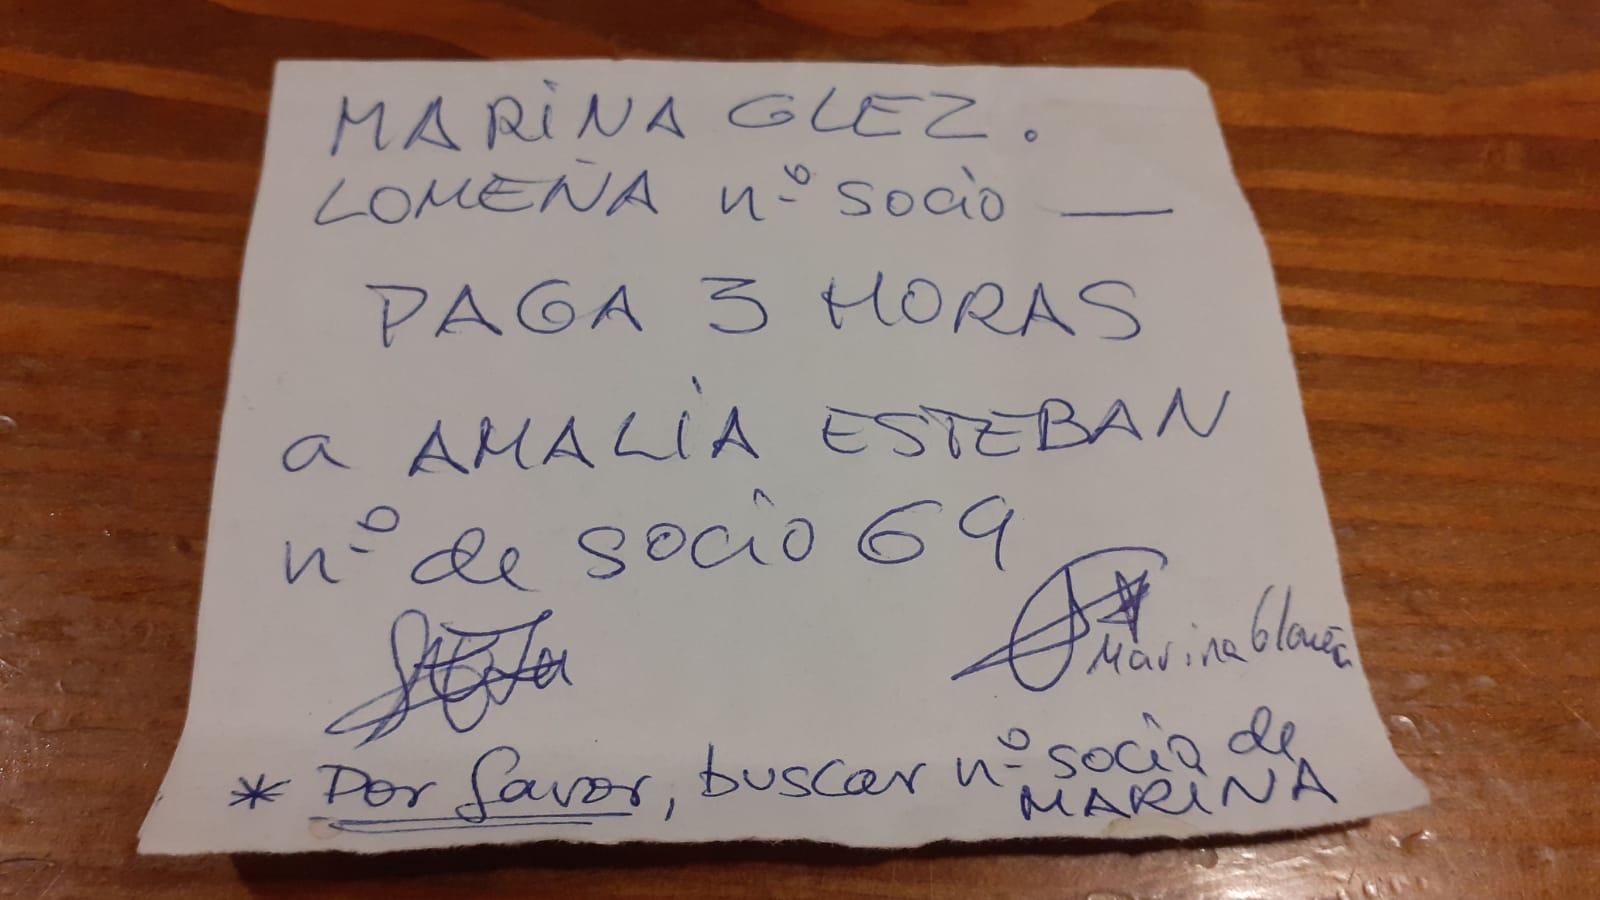 MARINA GLEZ.
LOMEÑA n.º socio __
PAGA 3 HORAS
a AMALIA ESTEBAN
n.º de socio 69
Marina
* Por favor, buscar n.º socio de
MARINA